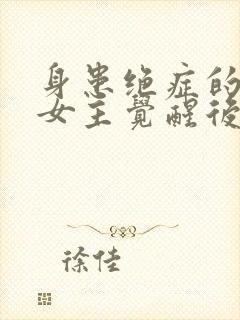 身患绝症的
女主覺醒後
徐佳